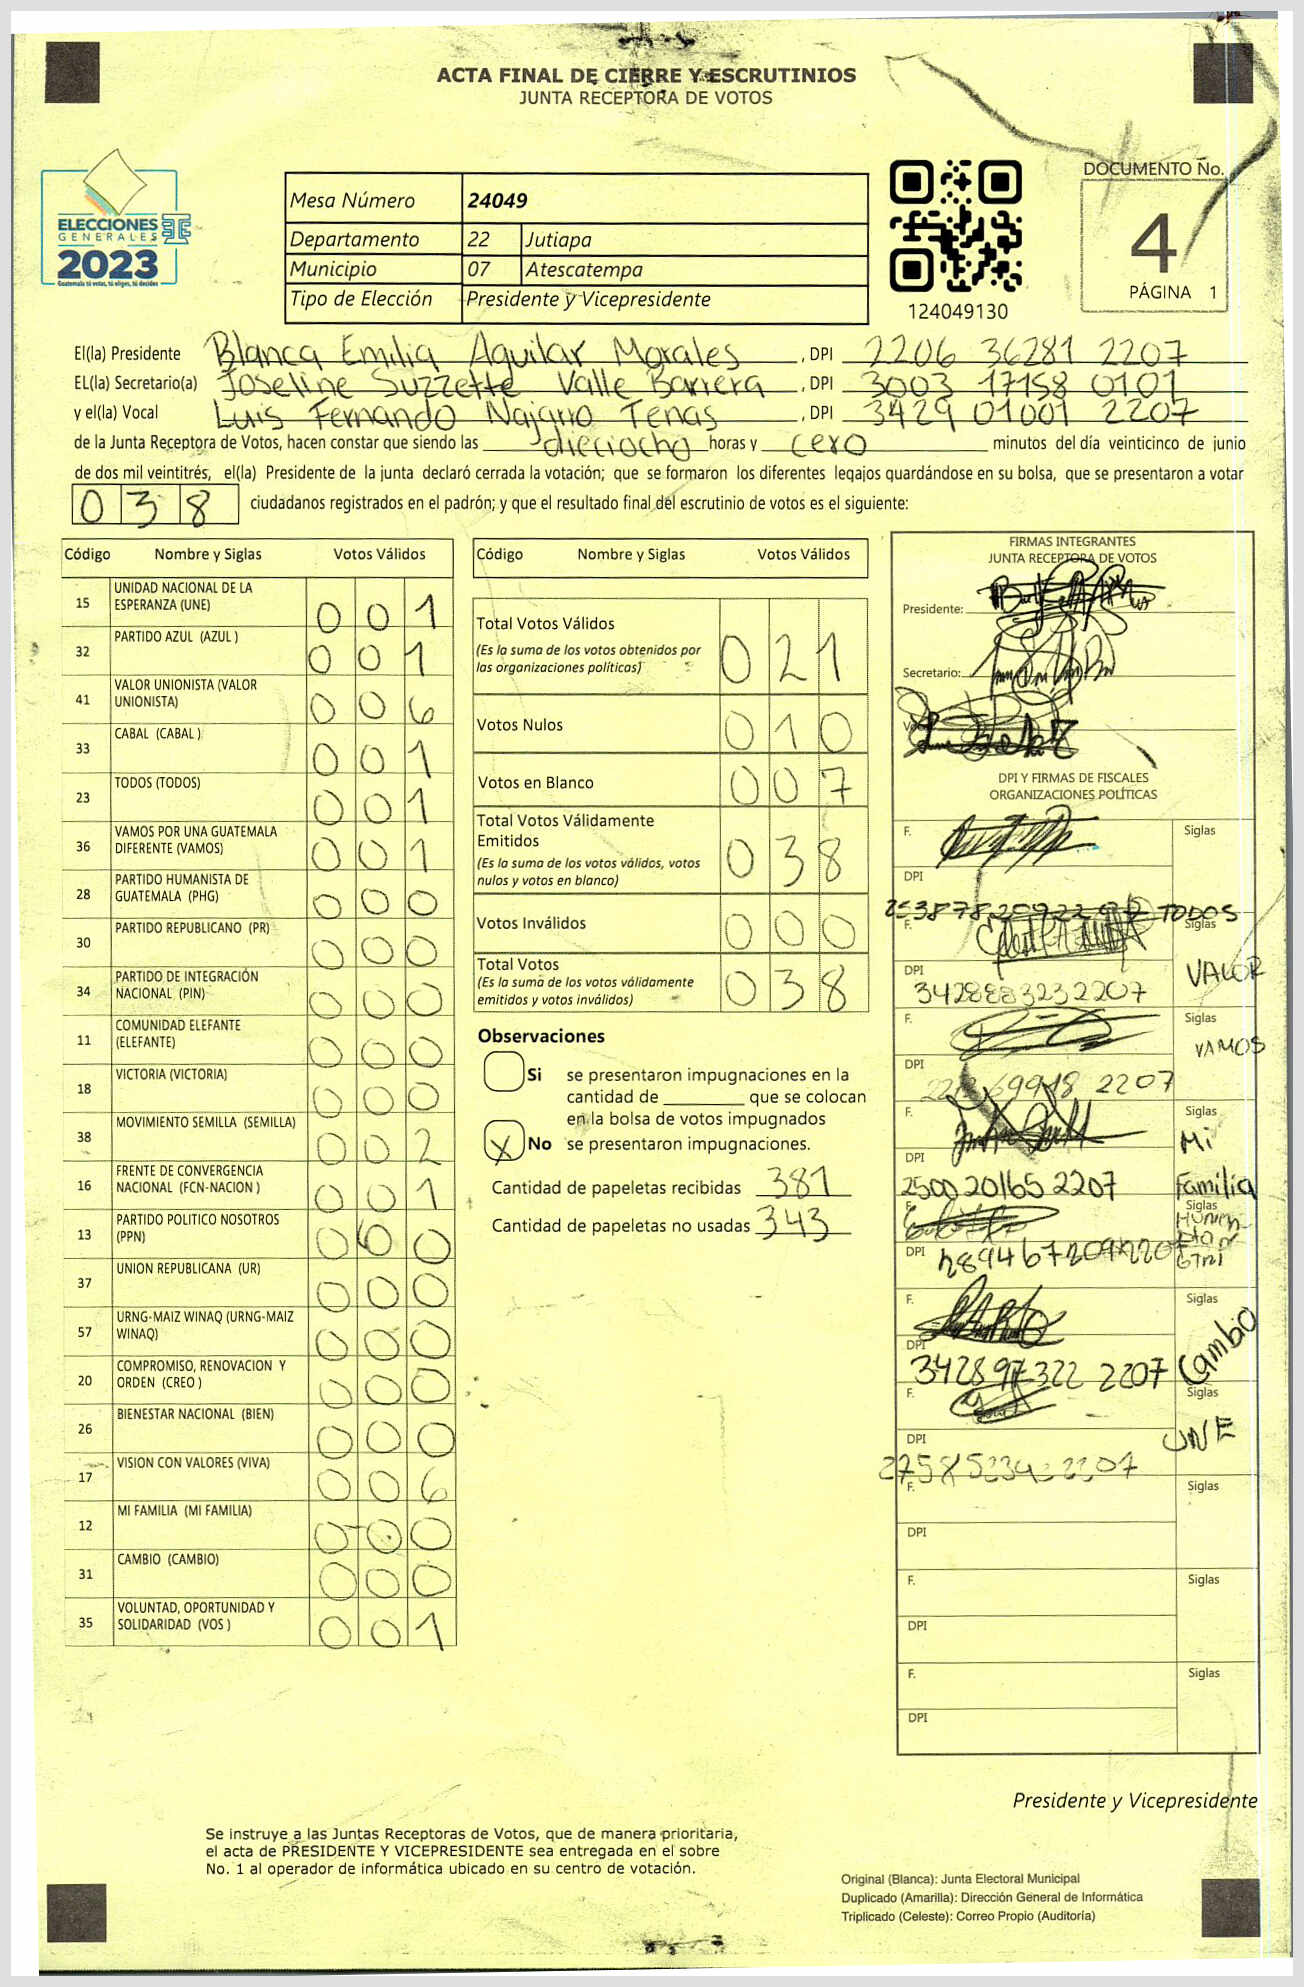 ACTA FINAL DE CIERRE Y ESCRUTINIOS
JUNTA RECEPTORA DE VOTOS
ELECCIONES
GENERALES
2023
Guatemala tú votas, tú eliges, tú decides
Mesa Número 24049
Departamento 22 Jutiapa
Municipio 07 Atescatempa
Tipo de Elección Presidente y Vicepresidente
124049130
DOCUMENTO No.
4
PÁGINA 1
El(la) Presidente Blanca Emilia Aguilar Morales , DPI 2206 36281 2207
EL(la) Secretario(a) Joseline Suzzette Valle Barrera , DPI 3003 17158 0101
y el(la) Vocal Luis Fernando Najarro Tenas , DPI 3429 01001 2207
de la Junta Receptora de Votos, hacen constar que siendo las dieciocho horas y cero minutos del día veinticinco de junio
de dos mil veintitrés, el(la) Presidente de la junta declaró cerrada la votación; que se formaron los diferentes legajos guardándose en su bolsa, que se presentaron a votar
038 ciudadanos registrados en el padrón; y que el resultado final del escrutinio de votos es el siguiente:
Código Nombre y Siglas Votos Válidos
15 UNIDAD NACIONAL DE LA ESPERANZA (UNE) 0 0 1
32 PARTIDO AZUL (AZUL ) 0 0 1
41 VALOR UNIONISTA (VALOR UNIONISTA) 0 0 6
33 CABAL (CABAL ) 0 0 1
23 TODOS (TODOS) 0 0 1
36 VAMOS POR UNA GUATEMALA DIFERENTE (VAMOS) 0 0 1
28 PARTIDO HUMANISTA DE GUATEMALA (PHG) 0 0 0
30 PARTIDO REPUBLICANO (PR) 0 0 0
34 PARTIDO DE INTEGRACIÓN NACIONAL (PIN) 0 0 0
11 COMUNIDAD ELEFANTE (ELEFANTE) 0 0 0
18 VICTORIA (VICTORIA) 0 0 0
38 MOVIMIENTO SEMILLA (SEMILLA) 0 0 2
16 FRENTE DE CONVERGENCIA NACIONAL (FCN-NACION ) 0 0 1
13 PARTIDO POLITICO NOSOTROS (PPN) 0 0 0
37 UNION REPUBLICANA (UR) 0 0 0
57 URNG-MAIZ WINAQ (URNG-MAIZ WINAQ) 0 0 0
20 COMPROMISO, RENOVACION Y ORDEN (CREO ) 0 0 0
26 BIENESTAR NACIONAL (BIEN) 0 0 0
17 VISION CON VALORES (VIVA) 0 0 6
12 MI FAMILIA (MI FAMILIA) 0 0 0
31 CAMBIO (CAMBIO) 0 0 0
35 VOLUNTAD, OPORTUNIDAD Y SOLIDARIDAD (VOS ) 0 0 1
Código Nombre y Siglas Votos Válidos
Total Votos Válidos 0 2 1
(Es la suma de los votos obtenidos por
las organizaciones políticas)
Votos Nulos 0 1 0
Votos en Blanco 0 0 7
Total Votos Válidamente
Emitidos 0 3 8
(Es la suma de los votos válidos, votos
nulos y votos en blanco)
Votos Inválidos 0 0 0
Total Votos 0 3 8
(Es la suma de los votos válidamente
emitidos y votos inválidos)
Observaciones
Si se presentaron impugnaciones en la
cantidad de ________ que se colocan
en la bolsa de votos impugnados
X No se presentaron impugnaciones.
Cantidad de papeletas recibidas 381
Cantidad de papeletas no usadas 343
FIRMAS INTEGRANTES
JUNTA RECEPTORA DE VOTOS
Presidente:
Secretario:
DPI Y FIRMAS DE FISCALES
ORGANIZACIONES POLÍTICAS
F. Siglas
DPI
TODOS
F. Siglas
DPI VALOR
F. Siglas
DPI VAMOS
2207
F. Siglas
DPI Mi
2500 20165 2207 Familia
F. Siglas
DPI
F. Siglas
DPI
342897322 2207 Cambio
F. Siglas
DPI UNE
F. Siglas
DPI
F. Siglas
DPI
F. Siglas
DPI
Presidente y Vicepresidente
Se instruye a las Juntas Receptoras de Votos, que de manera prioritaria,
el acta de PRESIDENTE Y VICEPRESIDENTE sea entregada en el sobre
No. 1 al operador de informática ubicado en su centro de votación.
Original (Blanca): Junta Electoral Municipal
Duplicado (Amarilla): Dirección General de Informática
Triplicado (Celeste): Correo Propio (Auditoría)